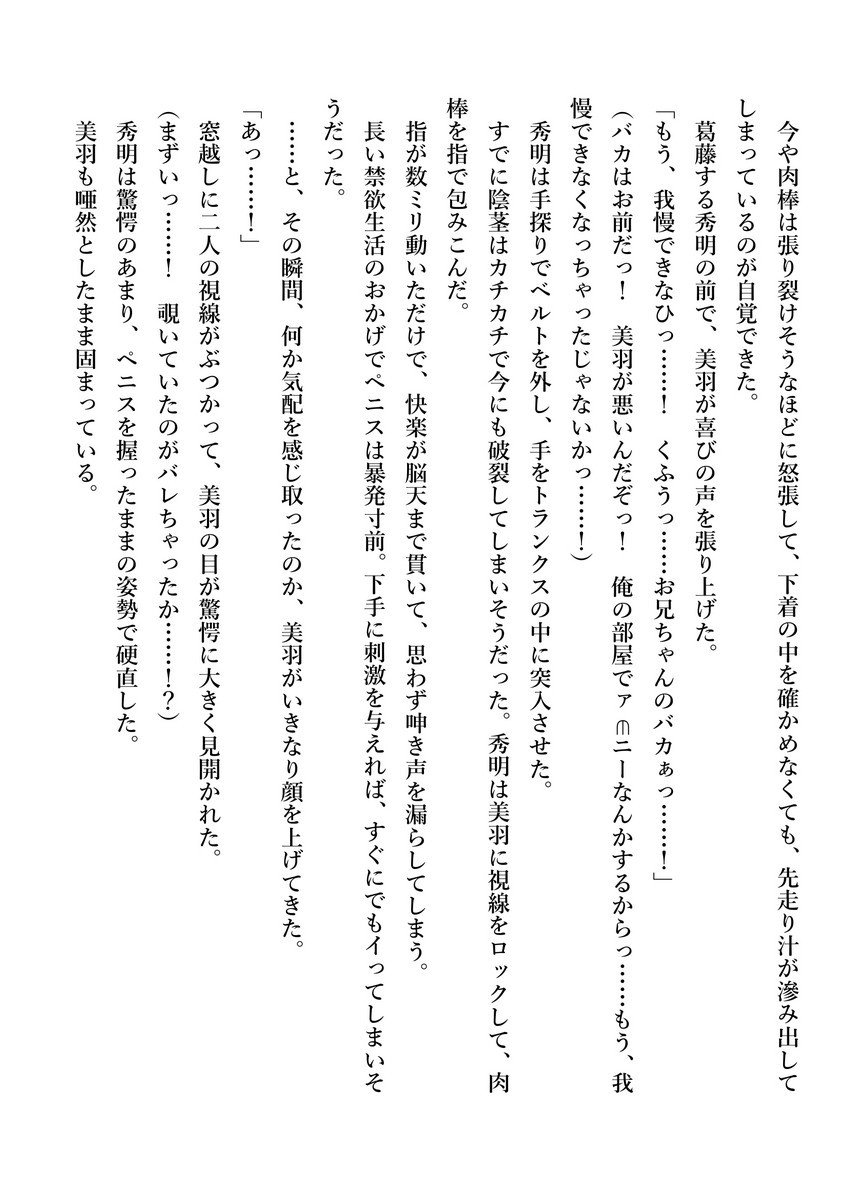 今や肉棒は張り裂けそうなほどに怒張して、下着の中を確かめなくても、先走り汁が滲み出して
しまっているのが自覚できた。
葛藤する秀明の前で、美羽が喜びの声を張り上げた。
「もう、我慢できなひっ……！　くふうっ……お兄ちゃんのバカぁっ……！」
(バカはお前だっ！　美羽が悪いんだぞっ！　俺の部屋でァ ニーなんかするからっ……もう、我
慢できなくなっちゃったじゃないかっ……！)
秀明は手探りでベルトを外し、手をトランクスの中に突入させた。
すでに陰茎はカチカチで今にも破裂してしまいそうだった。秀明は美羽に視線をロックして、肉
棒を指で包みこんだ。
指が数ミリ動いただけで、快楽が脳天まで貫いて、思わず呻き声を漏らしてしまう。
長い禁欲生活のおかげでペニスは暴発寸前。下手に刺激を与えれば、すぐにでもイってしまいそ
うだった。
……と、その瞬間、何か気配を感じ取ったのか、美羽がいきなり顔を上げてきた。
「あっ……！」
窓越しに二人の視線がぶつかって、美羽の目が驚愕に大きく見開かれた。
(まずいっ……！　覗いていたのがバレちゃったか……！？)
秀明は驚愕のあまり、ペニスを握ったままの姿勢で硬直した。
美羽も唖然としたまま固まっている。